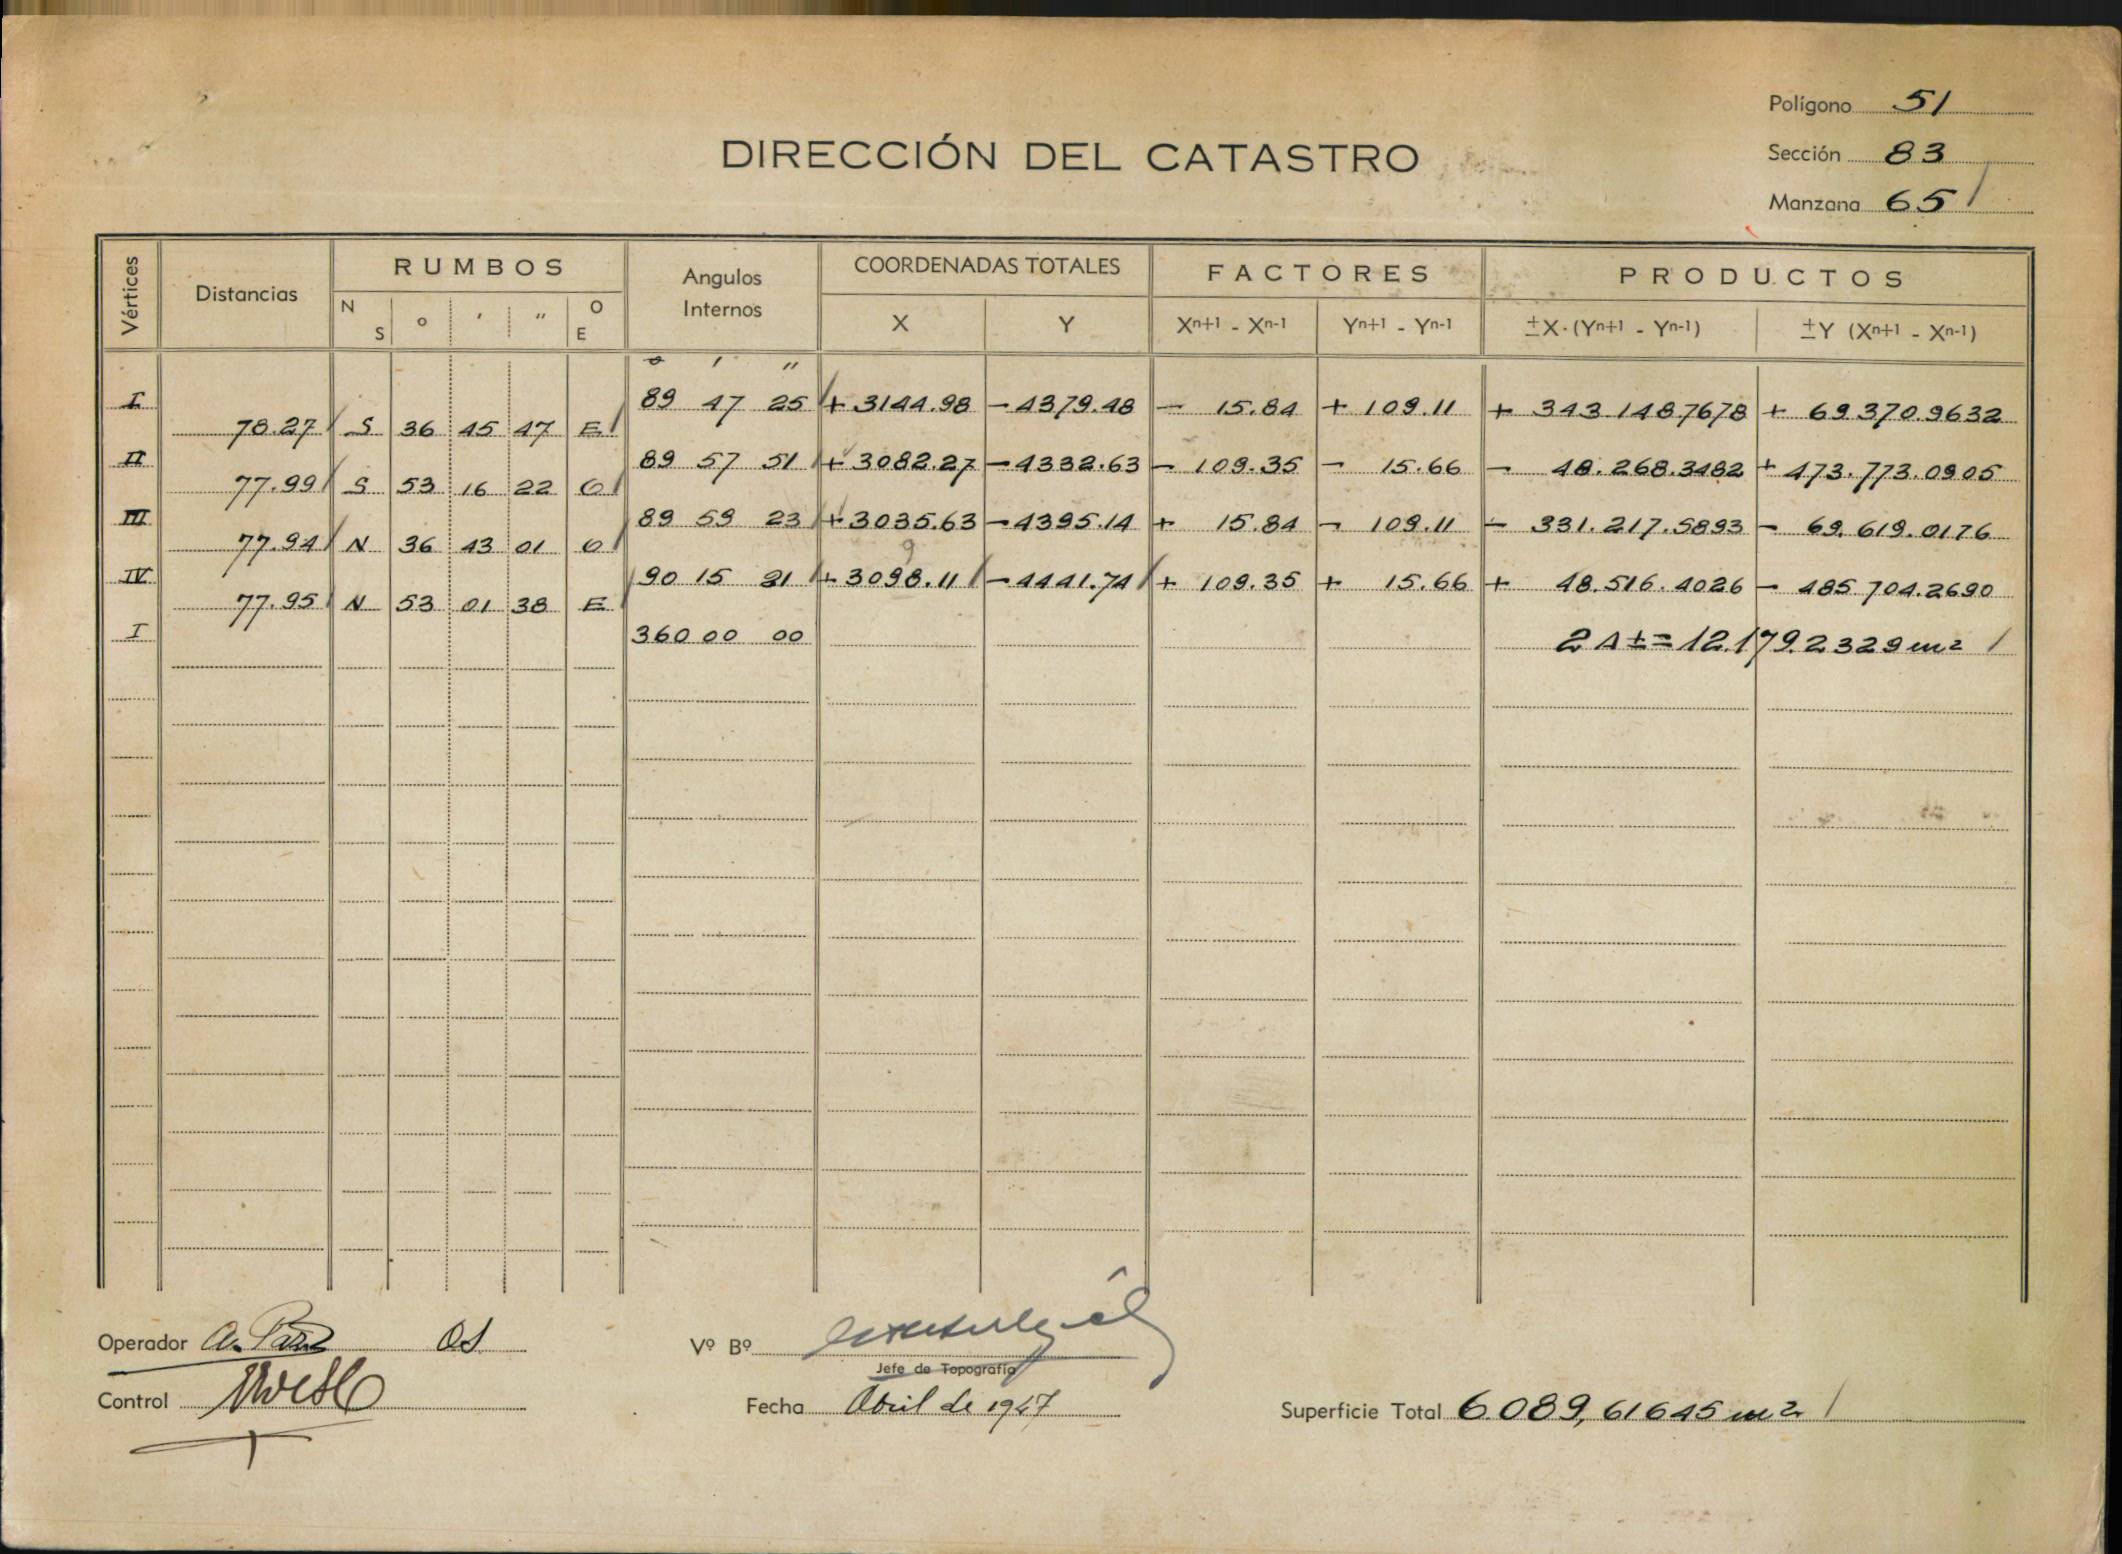 Polígono 51
Sección 83
Manzana 65
DIRECCIÓN DEL CATASTRO
Vértices Distancias RUMBOS Angulos Internos COORDENADAS TOTALES FACTORES PRODUCTOS
N S o ' " O E X Y Xn+1 - Xn-1 Yn+1 - Yn-1 ±X·(Yn+1 - Yn-1) ±Y (Xn+1 - Xn-1)
o ' "
I 89 47 25 + 3144.98 - 4379.48 - 15.84 + 109.11 + 343.148.7678 + 69.370.9632
78.27 S 36 45 47 E
II 89 57 51 + 3082.27 - 4332.63 - 109.35 - 15.66 - 48.268.3482 + 473.773.0905
77.99 S 53 16 22 O
III 89 59 23 + 3035.63 - 4395.14 + 15.84 - 109.11 - 331.217.5893 - 69.619.0176
77.94 N 36 43 01 O
9
IV 90 15 21 + 3098.11 - 4441.74 + 109.35 + 15.66 + 48.516.4026 - 485.704.2690
77.95 N 53 01 38 E
I 360 00 00 2 A ± = 12.179.2329 m2
Operador
Vº Bº
Jefe de Topografía
Control
Fecha Abril de 1947
Superficie Total 6.089,61645 m2